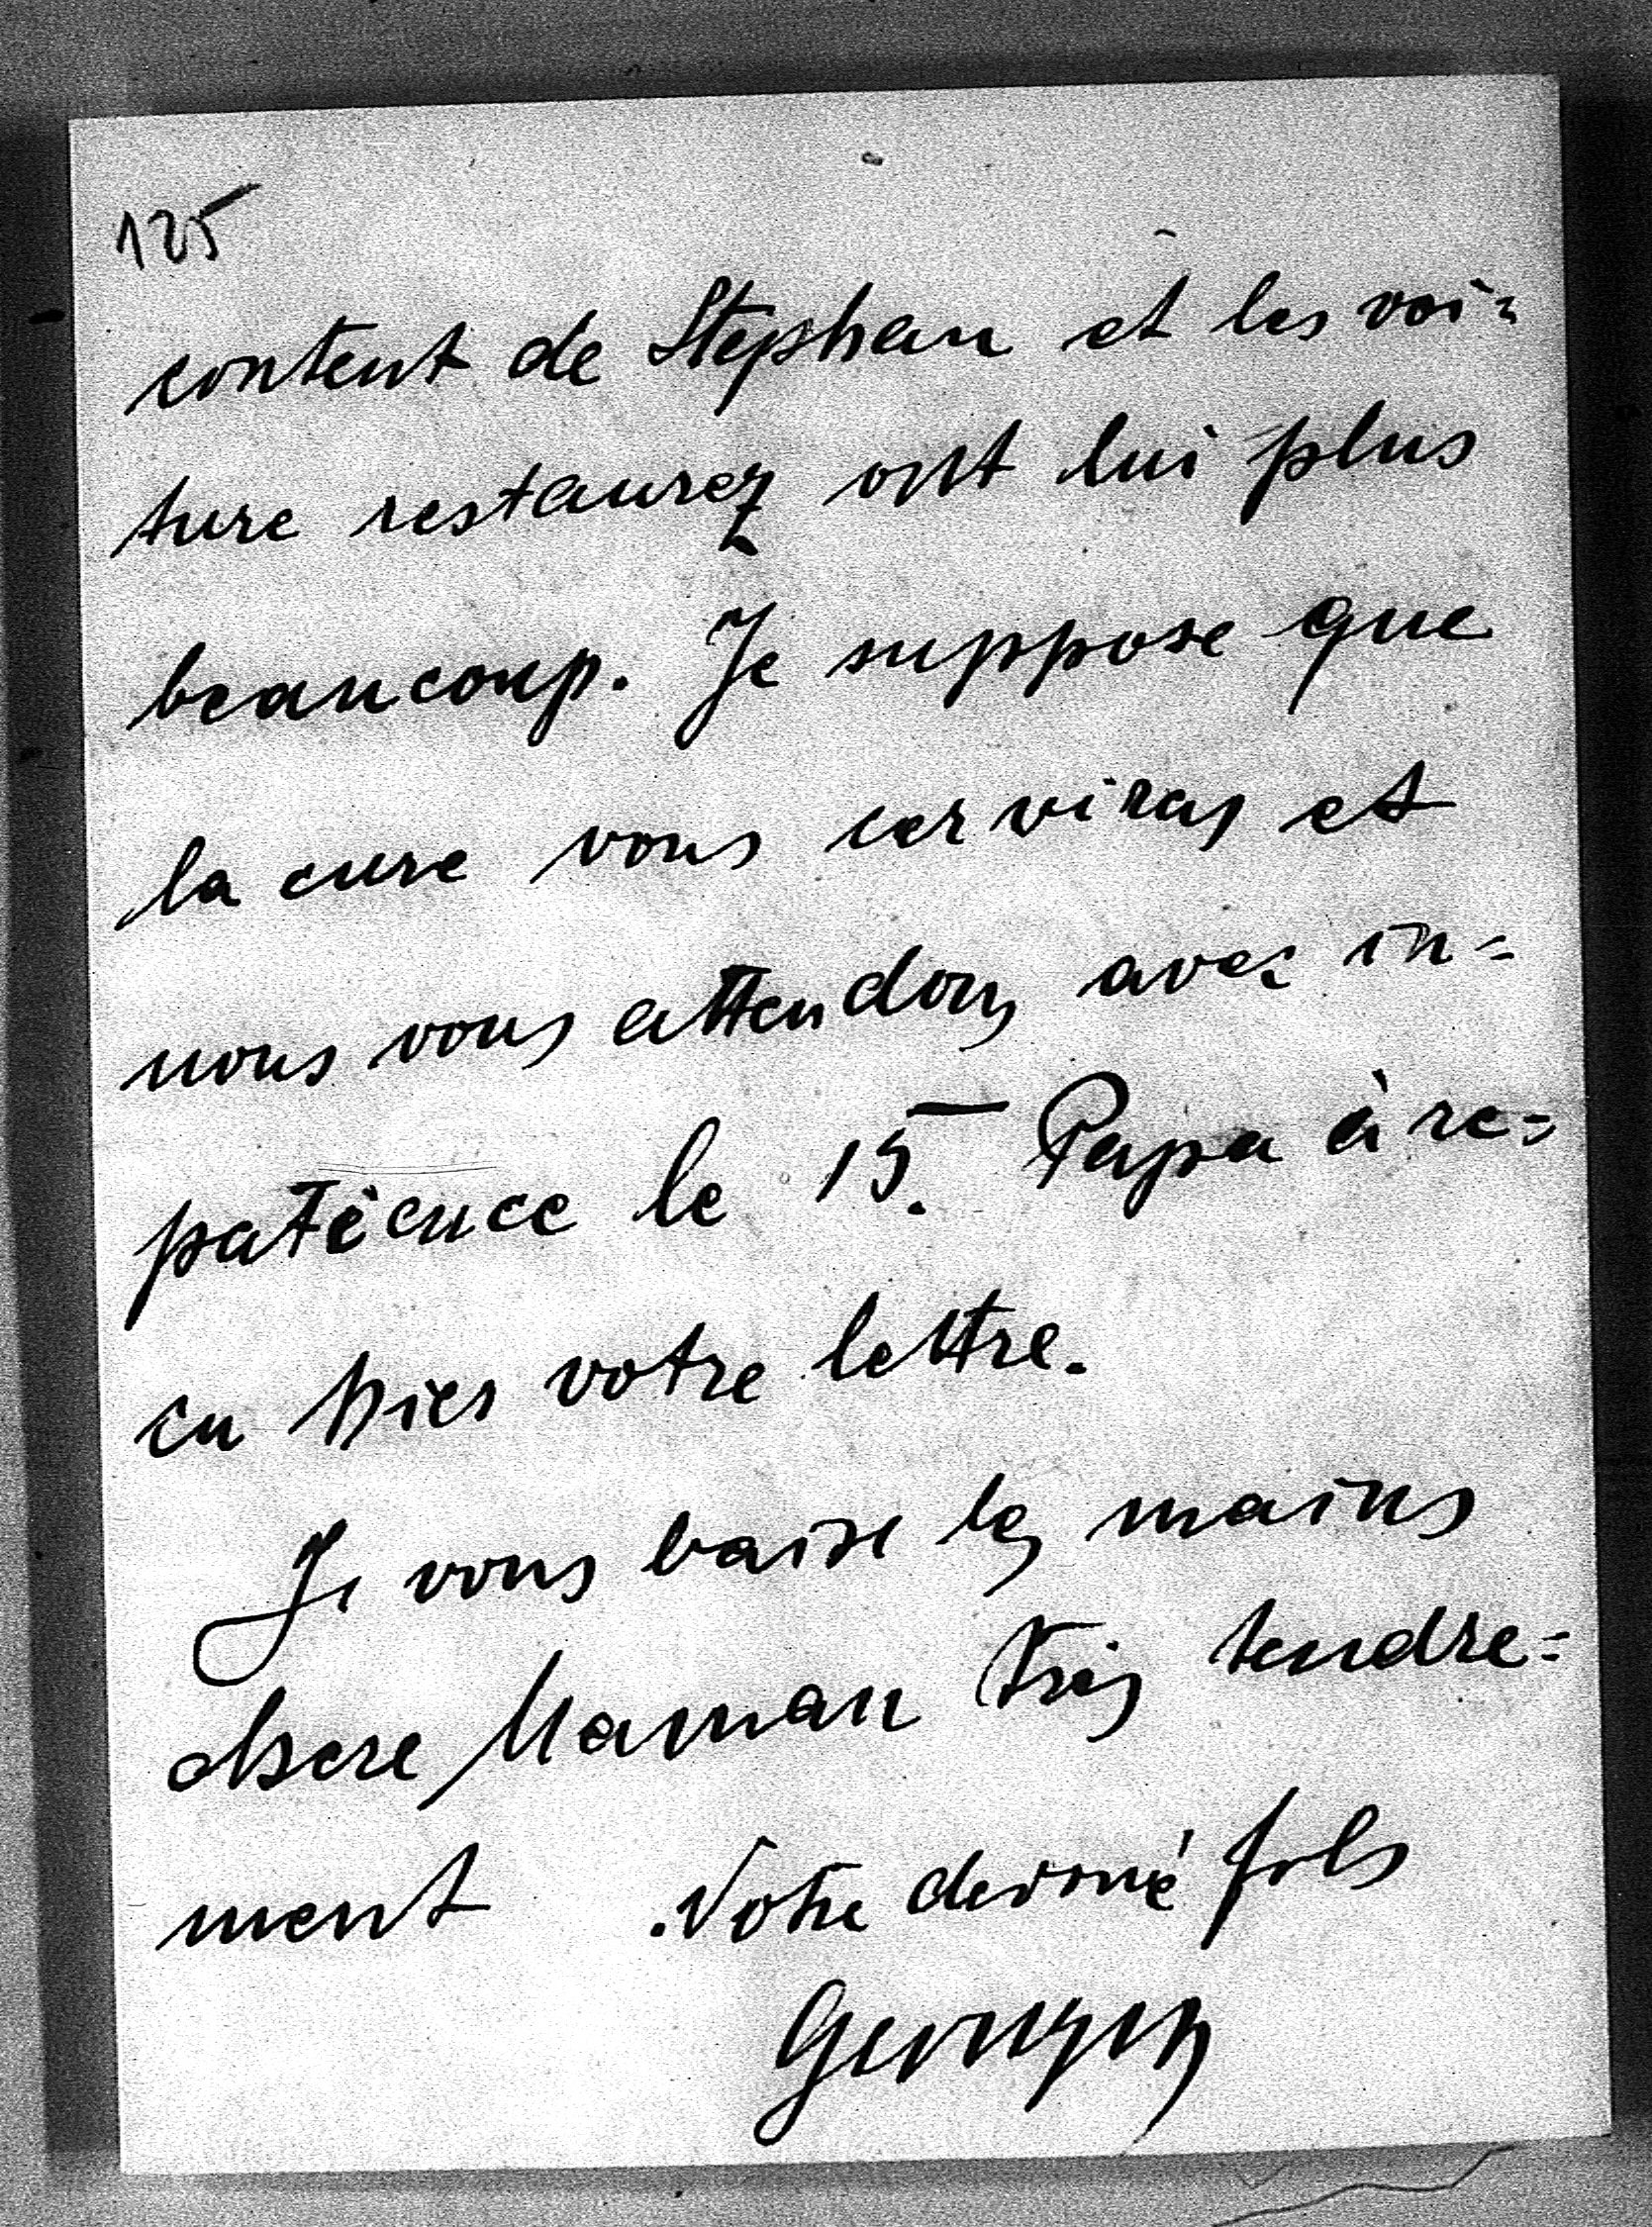 125
content de Stephan et les voi=
ture restaurez ont lui plus
beaucoup. Je suppose que
la cure vous cerviras et
nous vous attendons avec in=
patience le 15. Papa à re=
cu hier votre lettre.
Je vous baise les mains
chere Maman très tendre=
ment. Votre devoué fils
Georges